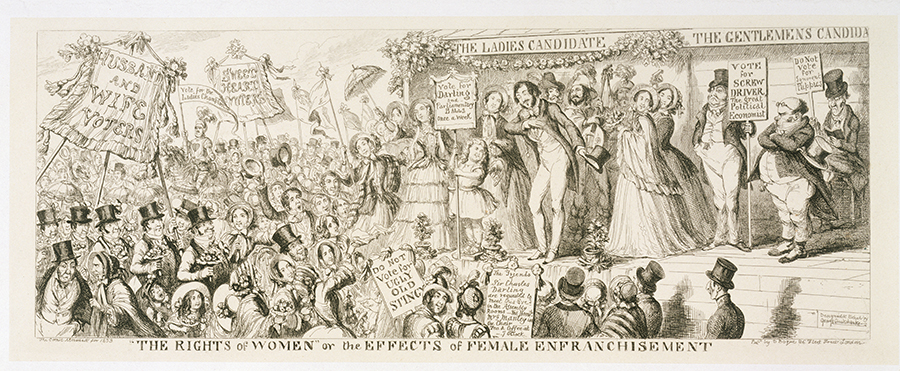 THE LADIES CANDIDATE
THE GENTLEMENS CANDIDA
HUSBAND
AND
WIFE
VOTERS
SWEET
HEART
VOTERS
Vote for the
Ladies
Vote for
Darling
and
Parliamentary
Balls
once a Week
VOTE
for
SCREW
DRIVER
The Great
Political
Economist
Do Not
Vote
for
Do Not
Vote for
UGLY
OLD
STINGY
The Friends
of
Sir Charles
Darling
are requested to
meet this Eve
in the Assembly
Rooms
Tea & Coffee at
7 o'clock
Designed & Etched by
George Cruikshank
The Comic Almanack for 1853
"THE RIGHTS of WOMEN" or the EFFECTS of FEMALE ENFRANCHISEMENT
Pub. by D. Bogue 86 Fleet Street London